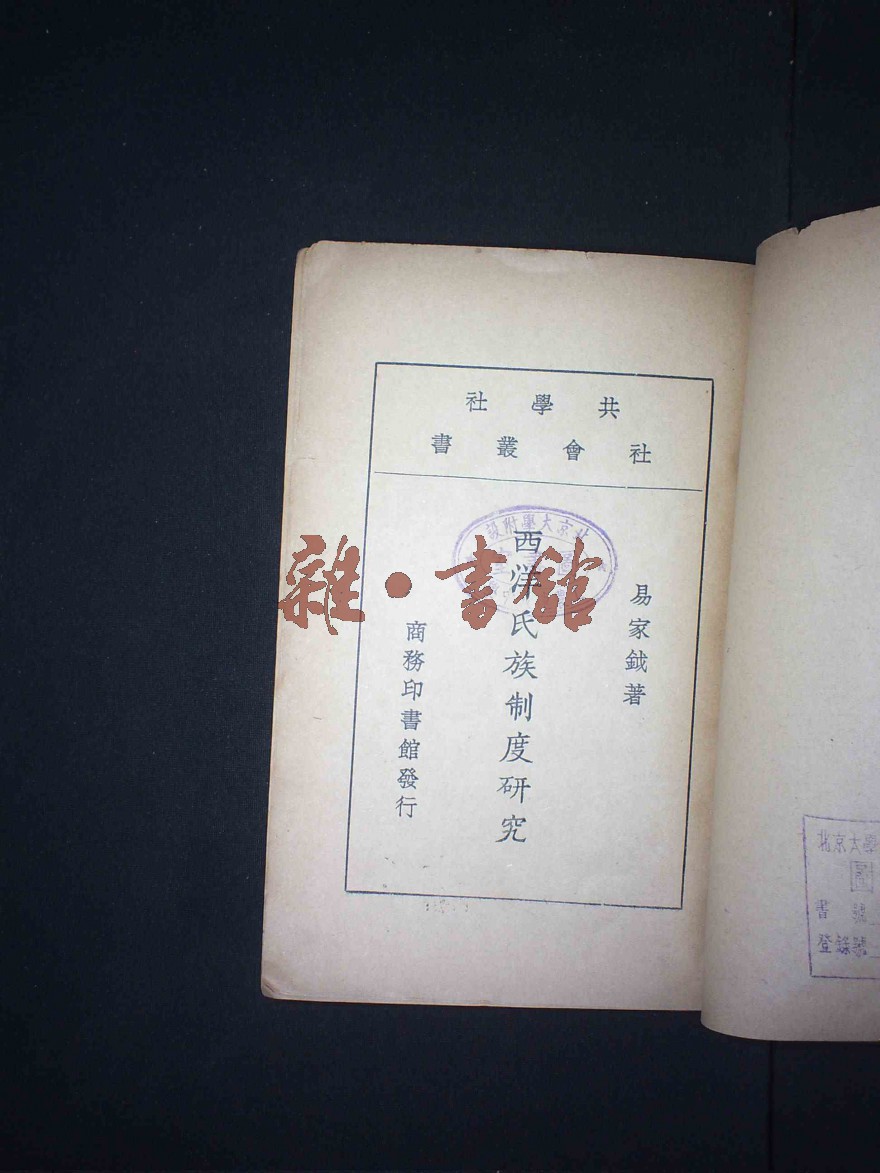 共學社
社會叢書
易家鉞著
西洋氏族制度研究
商務印書館發行
北京大學附設
雜·書館
北京大學
圖
書 號
登錄號